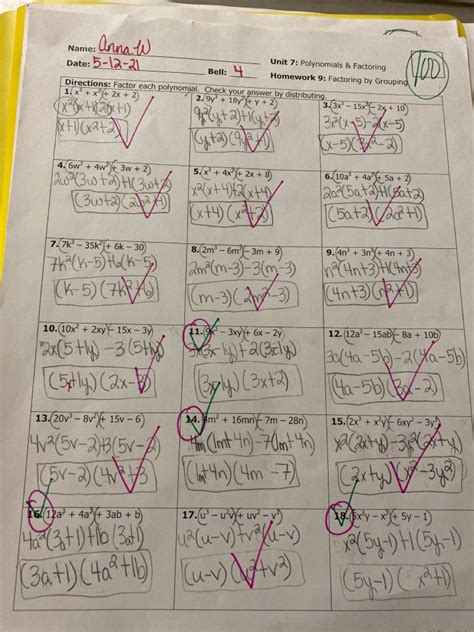 Name: Anna.W
Date: 5-12-21
Bell: 4
Unit 7: Polynomials & Factoring
Homework 9: Factoring by Grouping
100
Directions: Factor each polynomial. Check your answer by distributing.
1. x³ + x² + 2x + 2
(x+1)(x²+2)
2. 9y³ + 18y² + y + 2
9y²(y+2)+1(y+2)
(y+2)(9y²+1)
3. 3x³ − 15x² − 2x + 10
3x²(x-5)-2(x-5)
(x-5)(3x²-2)
4. 6w³ + 4w² + 3w + 2
2w²(3w+2)+1(3w+2)
(3w+2)(2w²+1)
5. x³ + 4x² + 2x + 8
x²(x+4)+2(x+4)
(x+4)(x²+2)
6. 10a³ + 4a² + 5a + 2
2a²(5a+2)+1(5a+2)
(5a+2)(2a²+1)
7. 7k³ − 35k² + 6k − 30
7k²(k-5)+6(k-5)
(k-5)(7k²+6)
8. 2m³ − 6m² − 3m + 9
2m²(m-3)-3(m-3)
(m-3)(2m²-3)
9. 4n³ + 3n² + 4n + 3
n²(4n+3)+1(4n+3)
(4n+3)(n²+1)
10. 10x² + 2xy − 15x − 3y
2x(5x+1y)-3(5x+1y)
(5x+1y)(2x-3)
11. 9x² − 3xy + 6x − 2y
3x(3x-1y)+2(3x-1y)
(3x-1y)(3x+2)
12. 12a² − 15ab − 8a + 10b
3a(4a-5b)-2(4a-5b)
(4a-5b)(3a-2)
13. 20v³ − 8v² + 15v − 6
4v²(5v-2)+3(5v-2)
(5v-2)(4v²+3
14. 4m² + 16mn − 7m − 28n
4m(1m+4n)-7(1m+4n)
(1m+4n)(4m-7)
15. 2x³ + x²y − 6xy² − 3y³
x²(2x+y)-3y²(2x+y)
(2x+y)(x²-3y²)
16. 12a³ + 4a² + 3ab + b
4a²(3a+1)+1b(3a+1)
(3a+1)(4a²+1b)
17. u³ − u²v + uv² − v³
u²(u-v)+v²(u-v)
(u-v)(u²+v²)
18. 5x²y − x² + 5y − 1
x²(5y-1)+1(5y-1)
(5y-1)(x²+1)